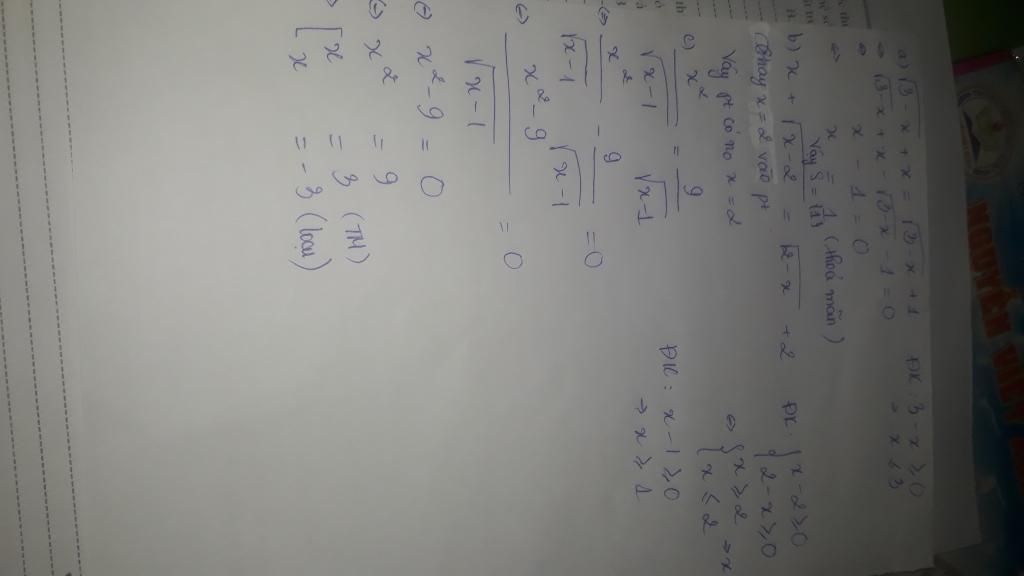 a) √3-x + x = √3-x + 1 ĐK: 3-x ≥ 0
⇔ √3-x + x - √3-x - 1 = 0 → x ≤ 3
⇔ x - 1 = 0
⇔ x = 1 (thoả mãn)
Vậy S = {1}
b) x + √x-2 = √2-x + 2 ĐK: { x-2 ≥ 0
{ 2-x ≥ 0
Thay x = 2 vào pt ⇔ { x ≥ 2
{ x ≤ 2 → x
Vậy pt có no x = 2
c) x² / √x-1 = 9 / √x-1 ĐK: x - 1 ≥ 0
→ x ≥ 1
⇔ x² / √x-1 - 9 / √x-1 = 0
⇔ x² - 9 / √x-1 = 0
⇔ x² - 9 = 0
⇔ x² = 9
[ x = 3 (TM)
x = -3 (loại)
NGUYỄN